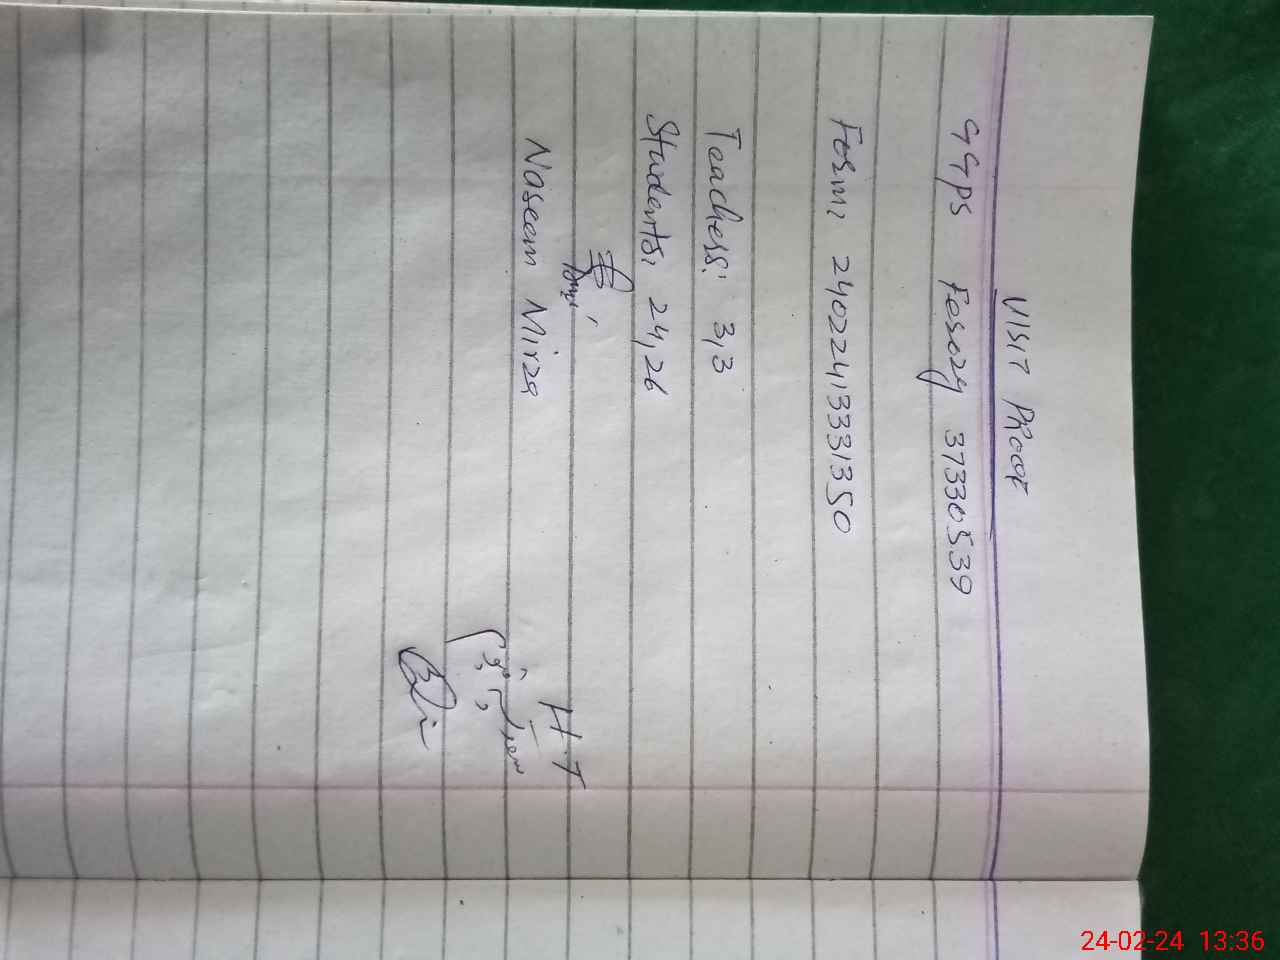 VISIT PROOF
GGPS Ferozy 37330539
Form: 24022413331350
Teachers: 3,3
Students: 24,26
Naseem Mirza
HT
24-02-24 13:36